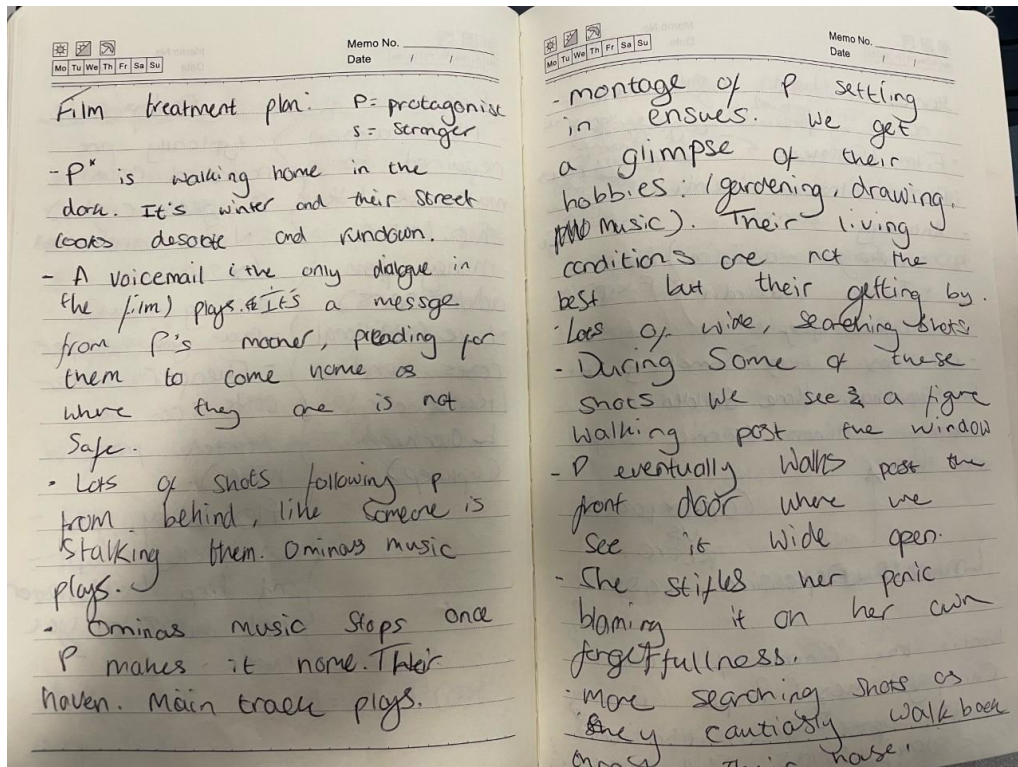 Memo No.
Mo Tu We Th Fr Sa Su
Date / /
Film treatment plan: P = protagonist
S = Stranger
- P* is walking home in the
dark. It's winter and their street
looks desolate and rundown.
- A voicemail (the only dialogue in
the film) plays. It's a messge
from P's mother, pleading for
them to come home as
where they are is not
Safe.
• Lots of shots following P
from behind, like someone is
Stalking them. Ominas music
plays.
• Ominas music stops once
P makes it home. Their
haven. Main track plays.
Memo No.
Mo Tu We Th Fr Sa Su
Date / /
- montage of P settling
in ensues. We get
a glimpse of their
hobbies: (gardening, drawing,
music). Their living
conditions are not the
best but their getting by.
· Lots of wide, searching shots
- During Some of these
shots we see a figure
walking past the window
- P eventually walks past the
front door where we
see it wide open.
- She stifles her panic
blaming it on her own
forgetfullness.
· More searching shots as
they cautiasly walk back
Their house.